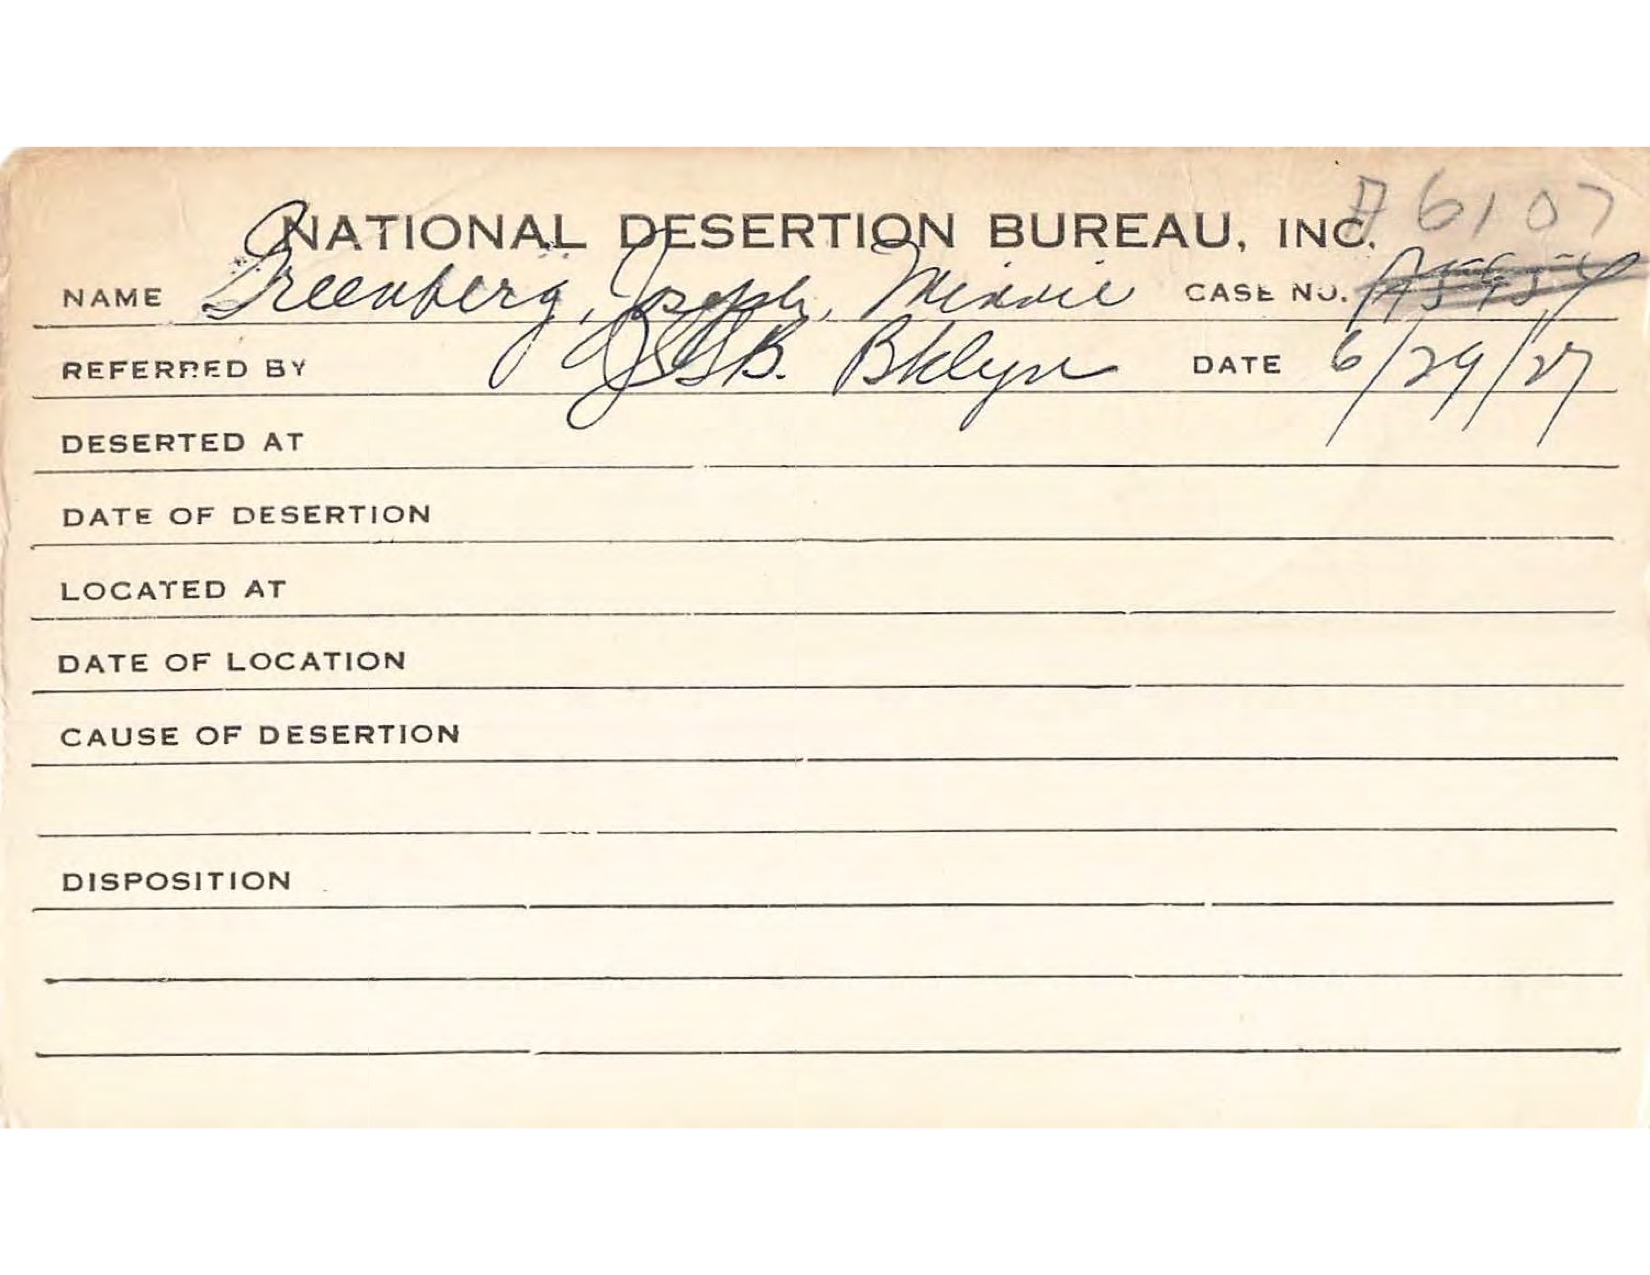 A6107
NATIONAL DESERTION BUREAU, INC.
NAME Greenberg, Joseph, Minnie CASE NO.
REFERRED BY JSSB. Bklyn DATE 6/29/27
DESERTED AT
DATE OF DESERTION
LOCATED AT
DATE OF LOCATION
CAUSE OF DESERTION
DISPOSITION